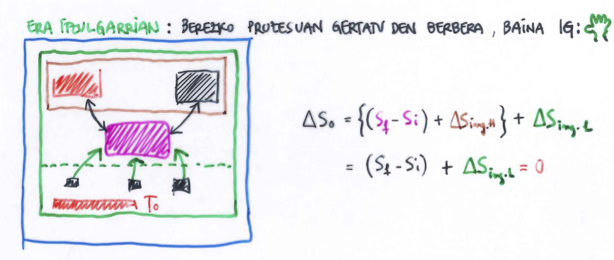 ERA ITZULGARRIAN : BEREZKO PROZESUAN GERTATU DEN BERBERA, BAINA IG:
T₀
ΔS₀ = {(S_f - S_i) + ΔS_ing.H} + ΔS_ing.L
= (S_f - S_i) + ΔS_ing.L = 0